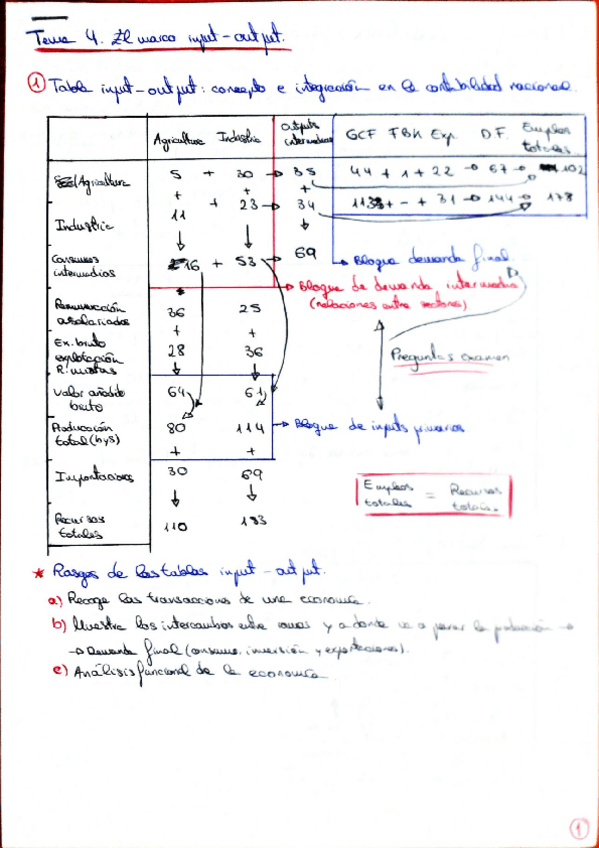 Tema 4. El marco input-output.
① Tabla input-output: concepto e integración en la contabilidad nacional.
Agricultura Industria outputs intermedios GCF FBK Exp. D.F. Empleos totales
Agricultura 5 + 30 → 35 44 + 1 + 22 → 67 → 102
+ + +
Industria 11 + 23 → 34 113 + - + 31 → 144 → 178
Consumos intermedios 16 + 53 → 69
→ Bloque demanda final.
→ Bloque de demanda intermedia
(relaciones entre sectores)
Remuneración asalariados 36 25
+ +
Ex. bruto explotación R. mixtas 28 36
Preguntas examen
Valor añadido bruto 64 61
Producción total (bys) 80 114
→ Bloque de inputs primarios
+ +
Importaciones 30 69
Empleos totales = Recursos totales.
Recursos totales 110 183
* Rasgos de las tablas input-output.
a) Recoge las transacciones de una economía.
b) Muestra los intercambios entre ramas y a donde va a parar la producción →
→ Demanda final (consumo, inversión y exportaciones).
c) Análisis funcional de la economía
1